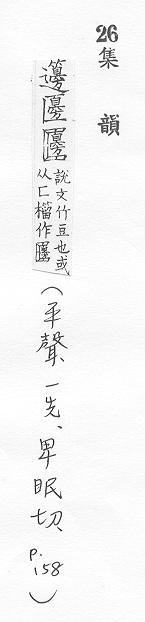 26 集韻
籩
說文竹豆也或
从匚籀作
(平聲、一先、卑眠切、p.158)